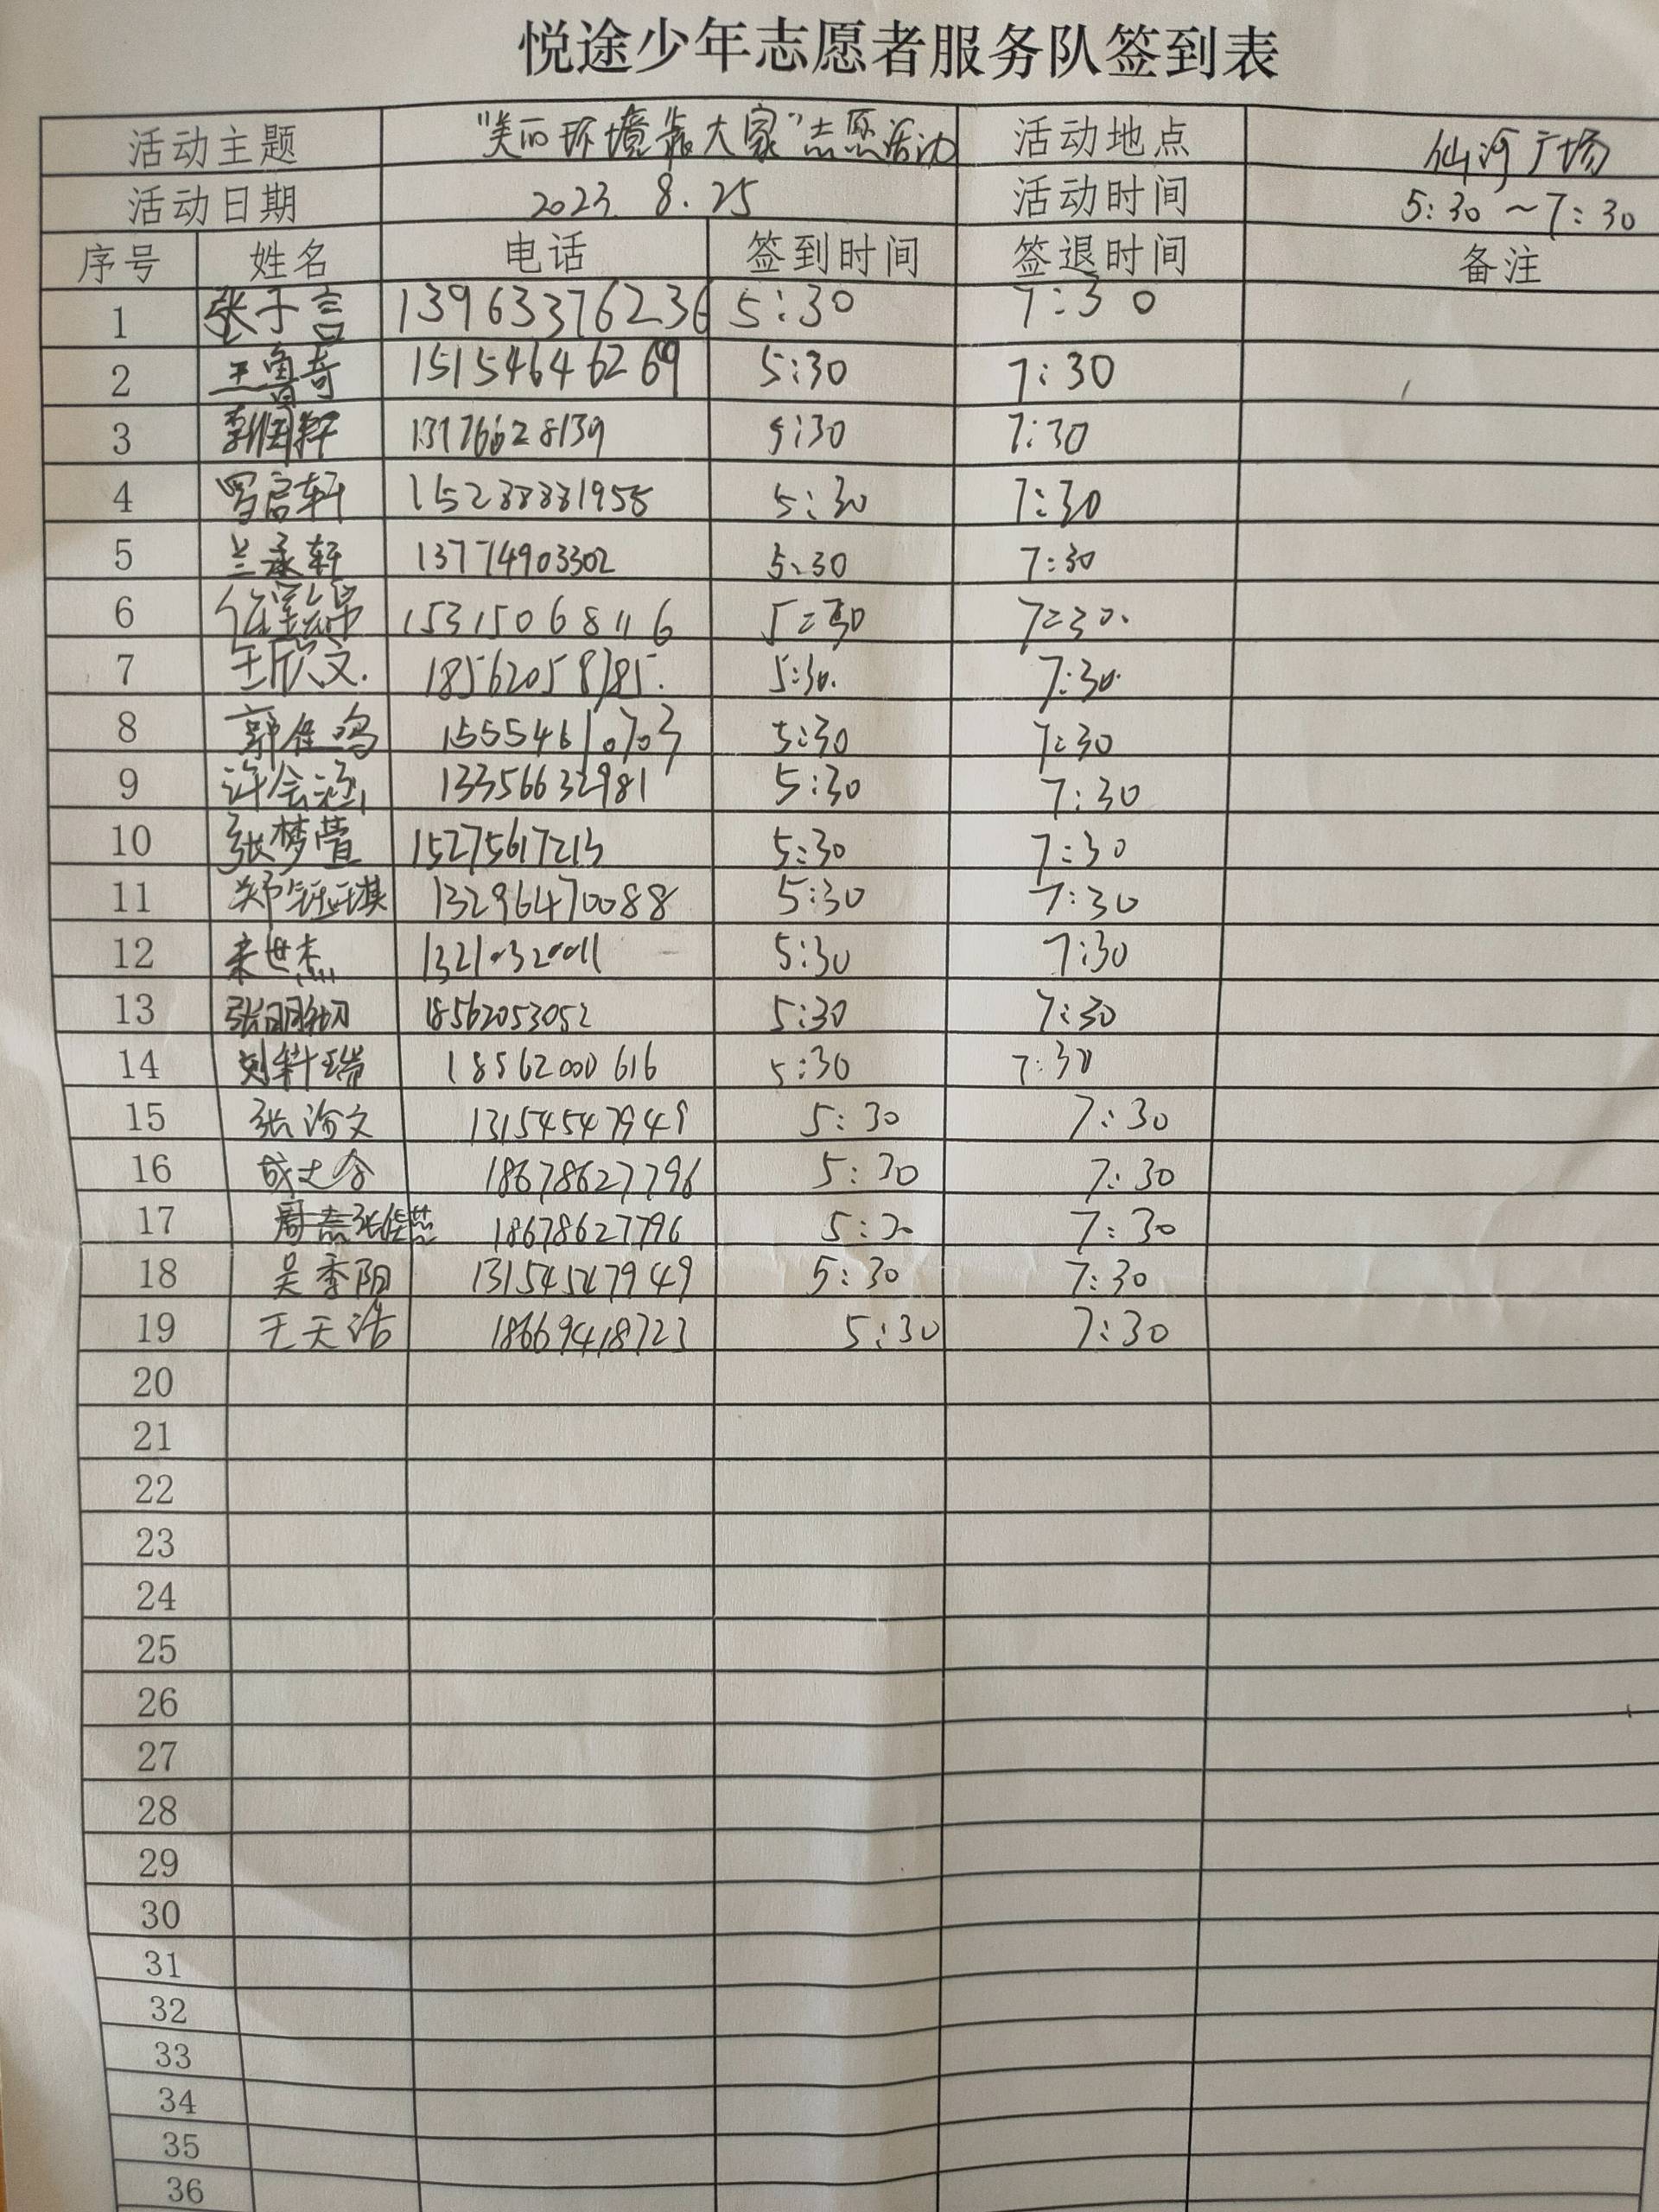 悦途少年志愿者服务队签到表
活动主题 "美丽环境靠大家"志愿活动 活动地点 仙河广场
活动日期 2023. 8. 25 活动时间 5:30～7:30
序号 姓名 电话 签到时间 签退时间 备注
1 张于言 13963376236 5:30 7:30
2 王鲁奇 15154646269 5:30 7:30
3 13176628139 5:30 7:30
4 罗启轩 15288881955 5:30 7:30
5 兰承轩 13774903302 5:30 7:30
6 15315068116 5:30 7:30.
7 王欣文. 18562058785. 5:30. 7:30.
8 郭佳鸣 15554610703 5:30 7:30
9 许会涵 13356632981 5:30 7:30
10 张梦萱 15275617213 5:30 7:30
11 郑钰琪 13296470088 5:30 7:30
12 来世杰 13210320011 5:30 7:30
13 18562053052 5:30 7:30
14 18562000616 5:30 7:30
15 张渝文 13154547949 5:30 7:30
16 18678627796 5:30 7:30
17 18678627796 5:30 7:30
18 吴季阳 13154547949 5:30 7:30
19 王天浩 18669418723 5:30 7:30
20
21
22
23
24
25
26
27
28
29
30
31
32
33
34
35
36